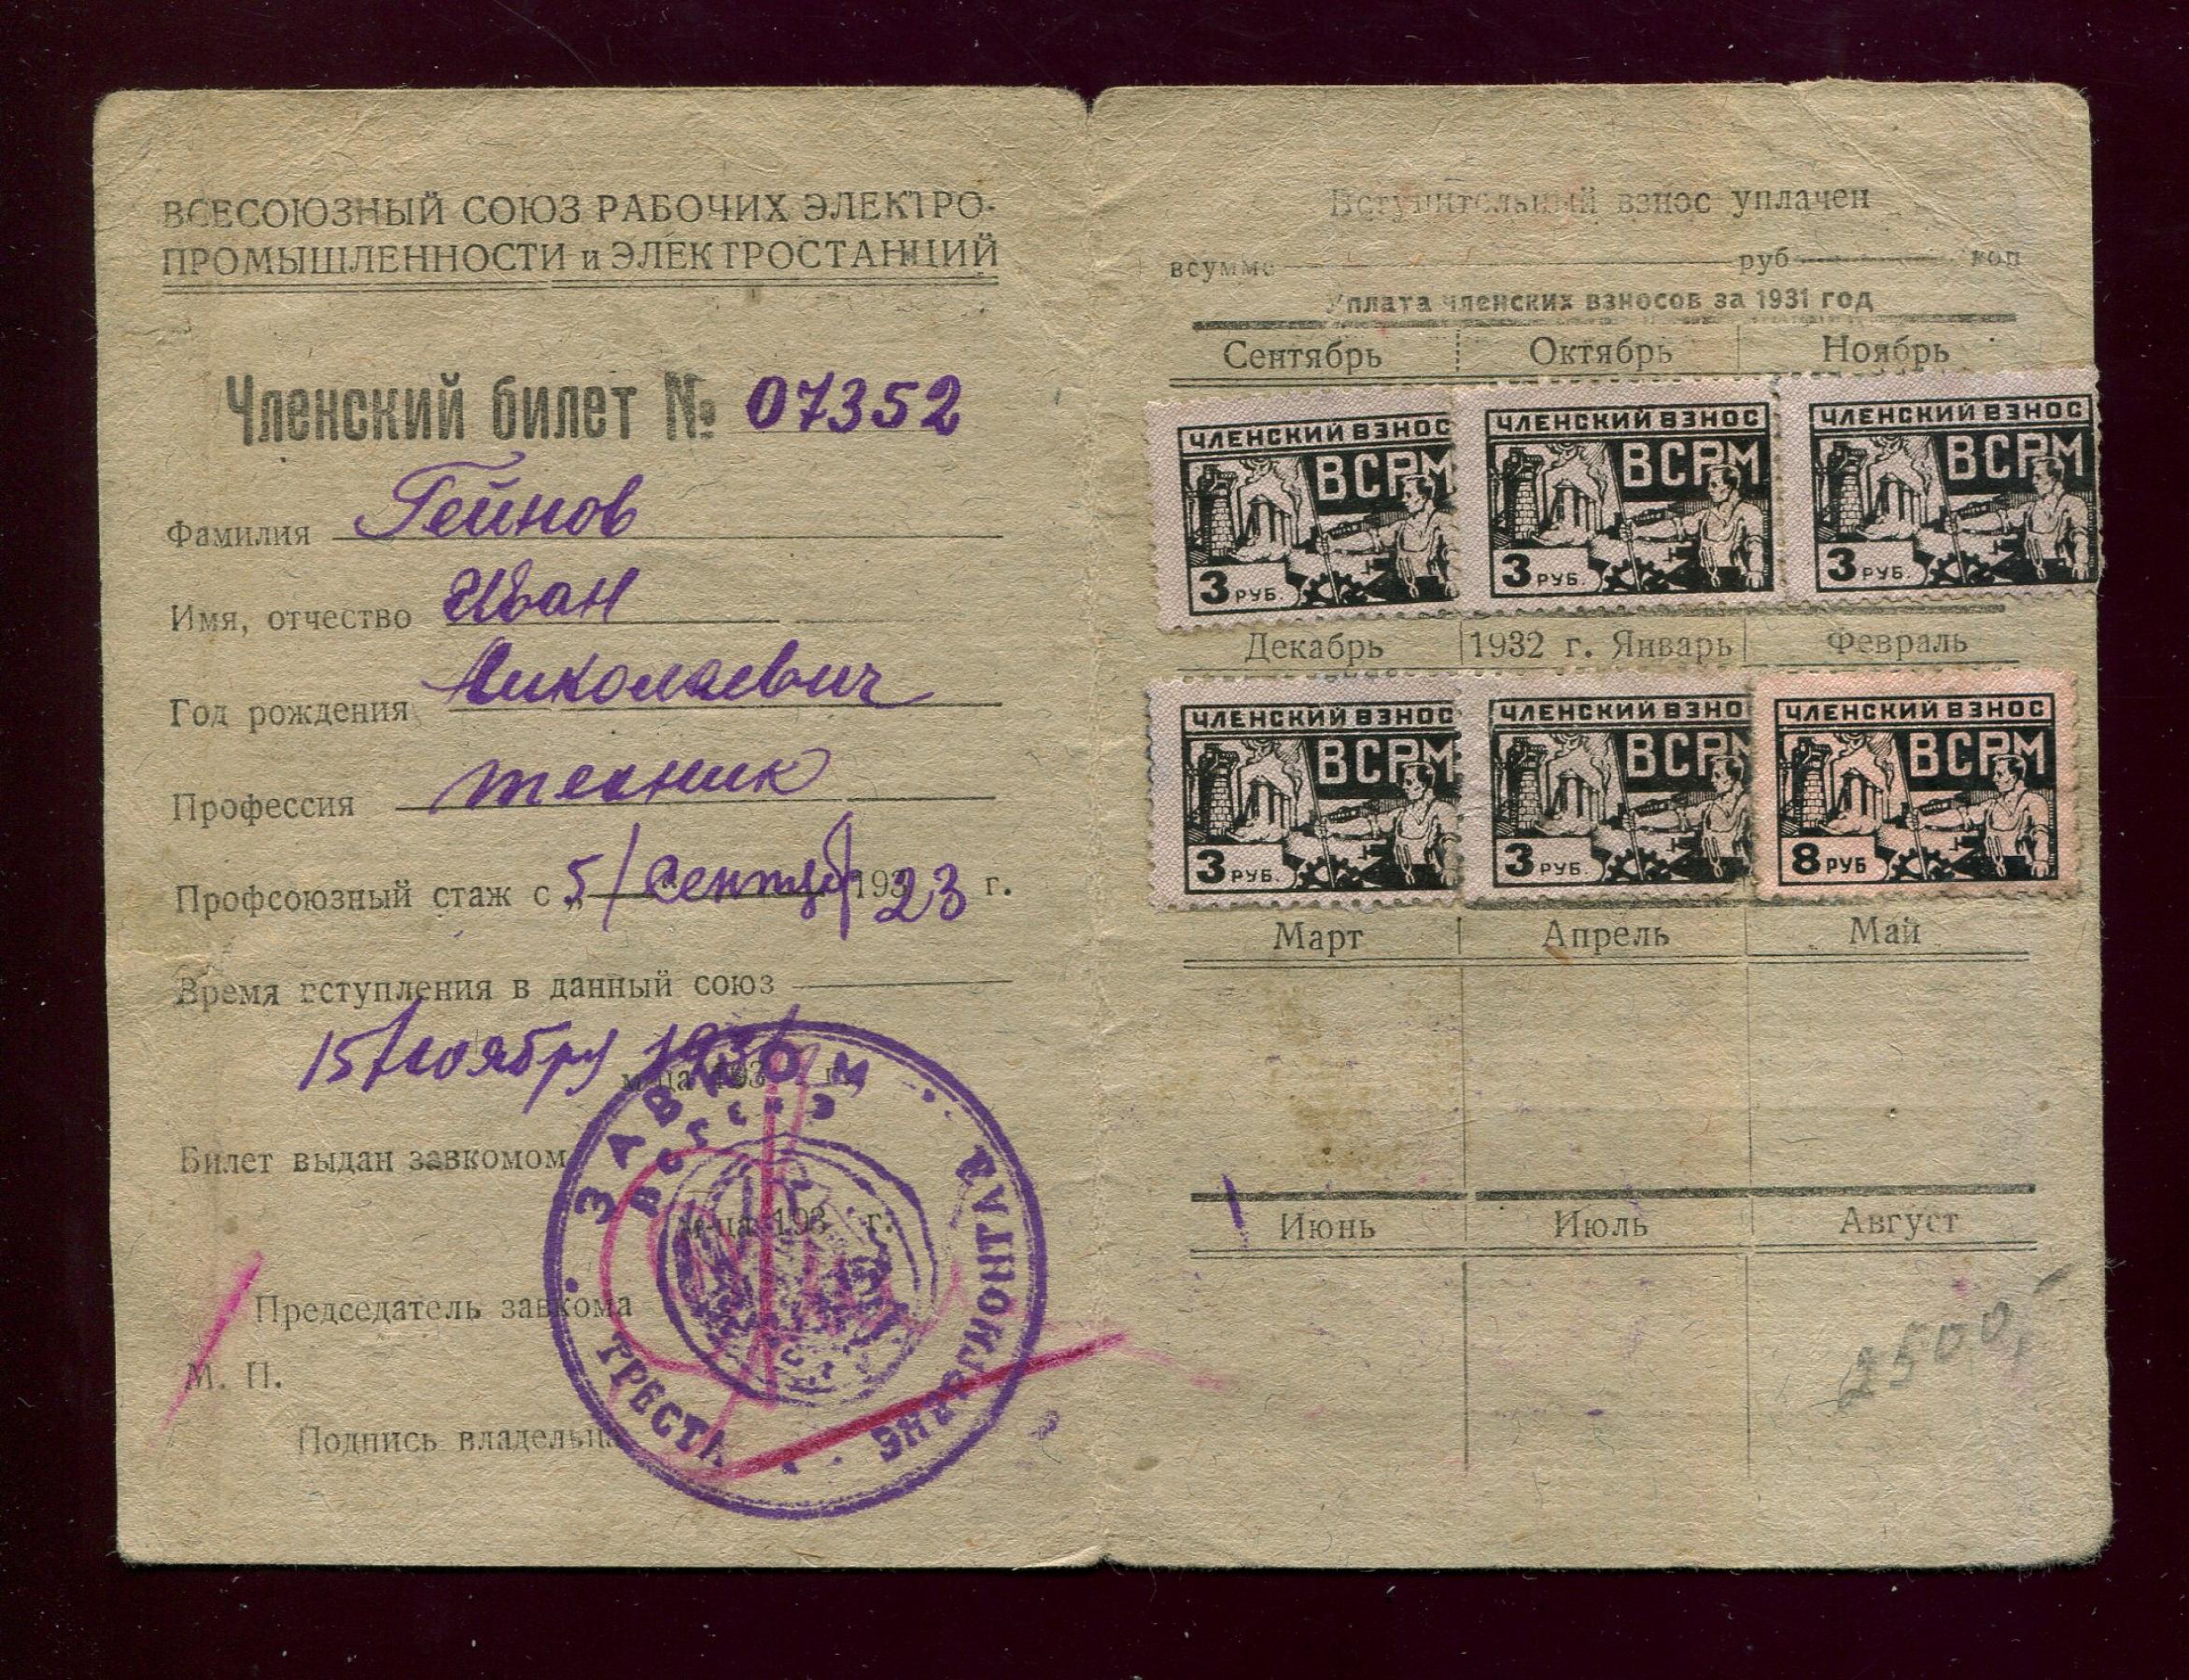 ВСЕСОЮЗНЫЙ СОЮЗ РАБОЧИХ ЭЛЕКТРО-
ПРОМЫШЛЕННОСТИ и ЭЛЕКТРОСТАНЦИЙ
Членский билет № 07352
Фамилия Гейнов
Имя, отчество Иван
Николаевич
Год рождения
Профессия техник
Профсоюзный стаж с „5/ сентяб 193 23 г.
Время вступления в данный союз
15/ноябру 1931
м-ца 193 г.
Билет выдан завкомом
м-ца 193 г.
Председатель завкома
М. П.
Подпись владельца
ЗАВКОМ
ТРЕСТА
Вступительный взнос уплачен
в сумме руб коп
Уплата членских взносов за 1931 год
Сентябрь Октябрь Ноябрь
ЧЛЕНСКИЙ ВЗНОС ЧЛЕНСКИЙ ВЗНОС ЧЛЕНСКИЙ ВЗНОС
ВСРМ ВСРМ ВСРМ
3 РУБ. 3 РУБ. 3 РУБ.
Декабрь 1932 г. Январь Февраль
ЧЛЕНСКИЙ ВЗНОС ЧЛЕНСКИЙ ВЗНО ЧЛЕНСКИЙ ВЗНОС
ВСРМ ВСРМ ВСРМ
3 РУБ. 3 РУБ 8 РУБ
Март Апрель Май
Июнь Июль Август
2500,-